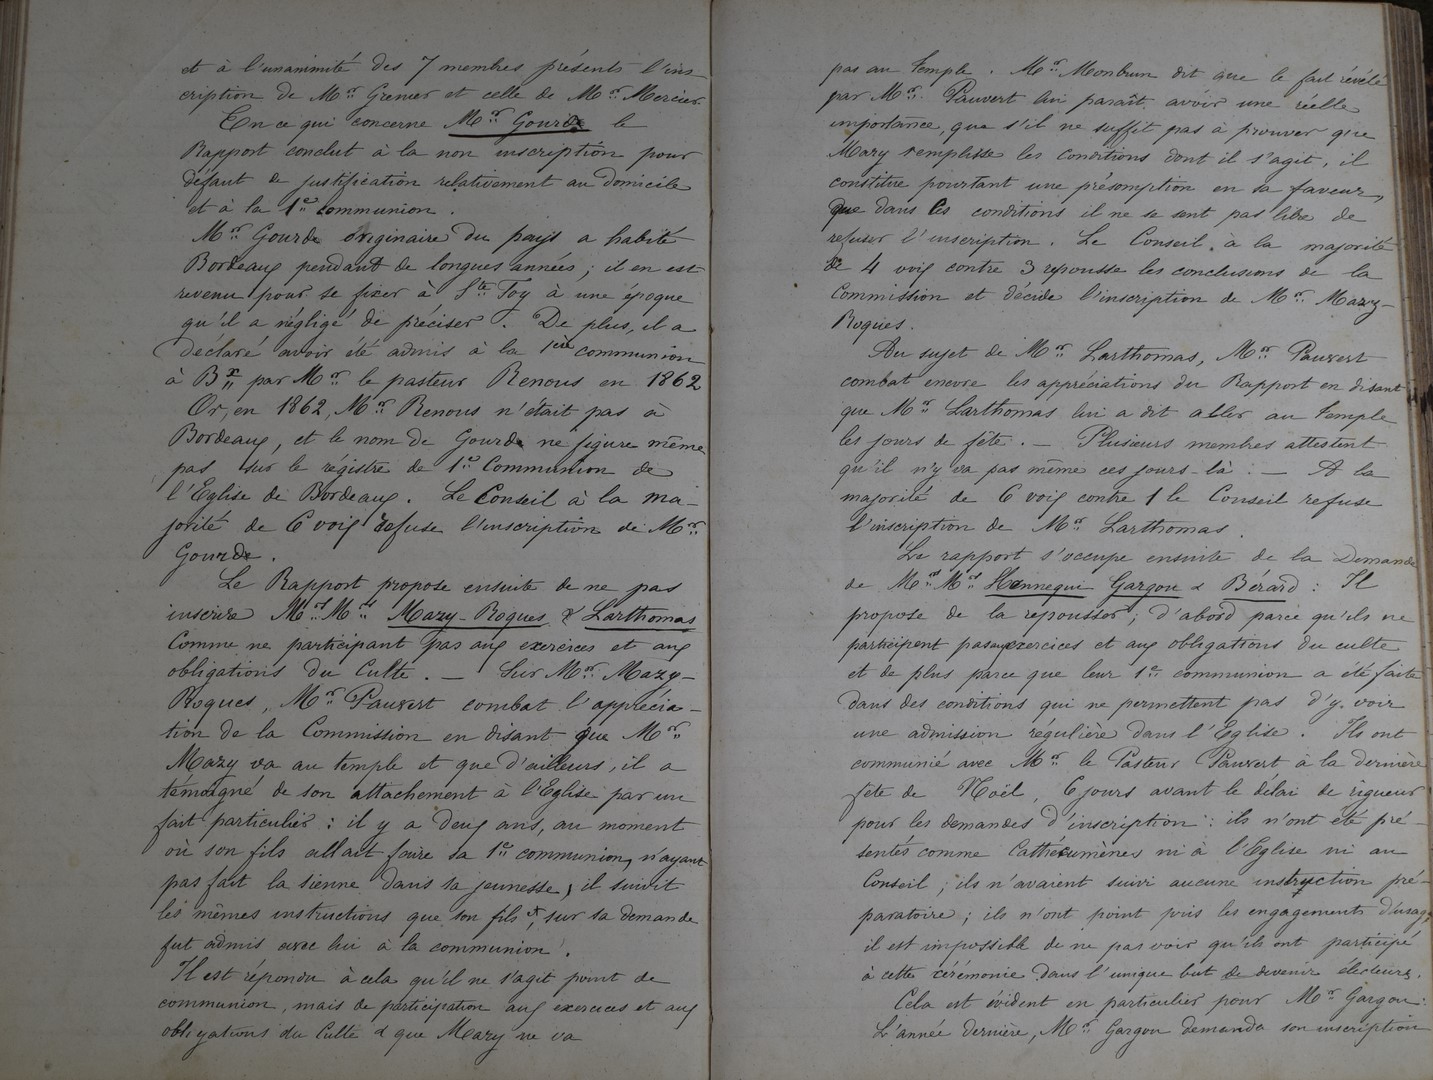 et à l'unanimité des 7 membres présents l'ins-
cription de Mr Grenier et celle de Mr Mercier.
En ce qui concerne Mr Gourde le
Rapport conclut à la non inscription pour
défaut de justification relativement au domicile
et à la 1re communion.
Mr Gourde originaire du pays a habité
Bordeaux pendant de longues années ; il en est
revenu pour se fixer à Ste Foy à une époque
qu'il a négligé de préciser. De plus, il a
déclaré avoir été admis à la 1ère communion
à Bx par Mr le pasteur Renous en 1862
Or, en 1862, Mr Renous n'était pas à
Bordeaux, et le nom de Gourde ne figure même
pas sur le régistre de 1re Communion de
l'Eglise de Bordeaux. Le Conseil à la ma-
jorité de 6 voix refuse l'inscription de Mr
Gourde.
Le Rapport propose ensuite de ne pas
inscrire Mrs Mrs Mazy-Roques & Larthomas
Comme ne participant pas aux exercices et aux
obligations du Culte. — Sur Mr Mazy-
Roques, Mr Pauvert combat l'apprécia-
tion de la Commission en disant que Mr
Mazy va au temple et que d'ailleurs, il a
témoigné de son attachement à l'Eglise par un
fait particulier : il y a deux ans, au moment
où son fils allait faire sa 1re communion, n'ayant
pas fait la sienne dans sa jeunesse, il suivit
les mêmes instructions que son fils et, sur sa demande
fut admis avec lui à la communion.
Il est répondu à cela qu'il ne s'agit point de
communion, mais de participation aux exercices et aux
obligations du Culte & que Mazy ne va
pas au temple. Mr Monbrun dit que le fait révélé
par Mr Pauvert lui paraît avoir une réelle
importance, que s'il ne suffit pas à prouver que
Mazy remplisse les conditions dont il s'agit, il
constitue pourtant une présomption en sa faveur,
que dans ces conditions il ne se sent pas libre de
refuser l'inscription. Le Conseil, à la majorité
de 4 voix contre 3 repousse les conclusions de la
Commission et décide l'inscription de Mr Mazy-
Roques.
Au sujet de Mr Larthomas, Mr Pauvert
combat encore les appréciations du Rapport en disant
que Mr Larthomas lui a dit aller au temple
les jours de fête. — Plusieurs membres attestent
qu'il n'y va pas même ces jours-là. — A la
majorité de 6 voix contre 1 le Conseil refuse
l'inscription de Mr Larthomas.
Le rapport s'occupe ensuite de la Demande
de Mrs Mrs Hennequi Gargou & Bérard : Il
propose de la repousser ; d'abord parce qu'ils ne
participent pas aux exercices et aux obligations du culte
et de plus parce que leur 1re communion a été faite
dans des conditions qui ne permettent pas d'y voir
une admission régulière dans l'Eglise. Ils ont
communié avec Mr le Pasteur Pauvert à la dernière
fête de Noël, 6 jours avant le délai de rigueur
pour les demandes d'inscription : ils n'ont été pré-
sentés comme Cathécumènes ni à l'Eglise ni au
Conseil ; ils n'avaient suivi aucune instruction pré-
paratoire ; ils n'ont point pris les engagements d'usage,
il est impossible de ne pas voir qu'ils ont participé
à cette cérémonie dans l'unique but de devenir électeurs.
Cela est évident en particulier pour Mr Gargou :
L'année dernière, Mr Gargou demanda son inscription